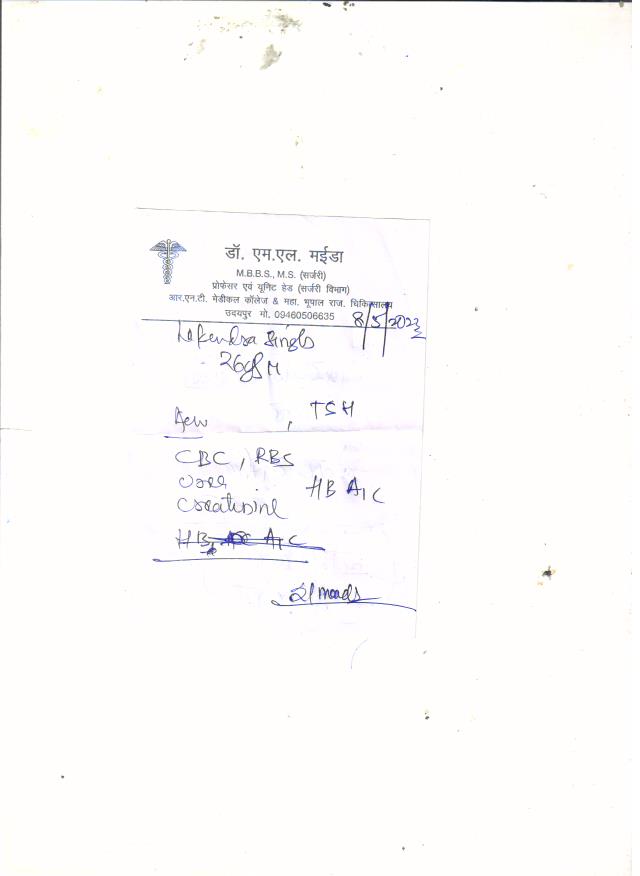 डॉ. एम.एल. मईडा
M.B.B.S., M.S. (सर्जरी)
प्रोफेसर एवं यूनिट हेड (सर्जरी विभाग)
आर.एन.टी. मेडीकल कॉलेज & महा. भूपाल राज. चिकित्सालय
उदयपुर मो. 09460506635
8/5/2023
Singh
26 M
, TSH
CBC, RBS
HB A1C
Creatinine